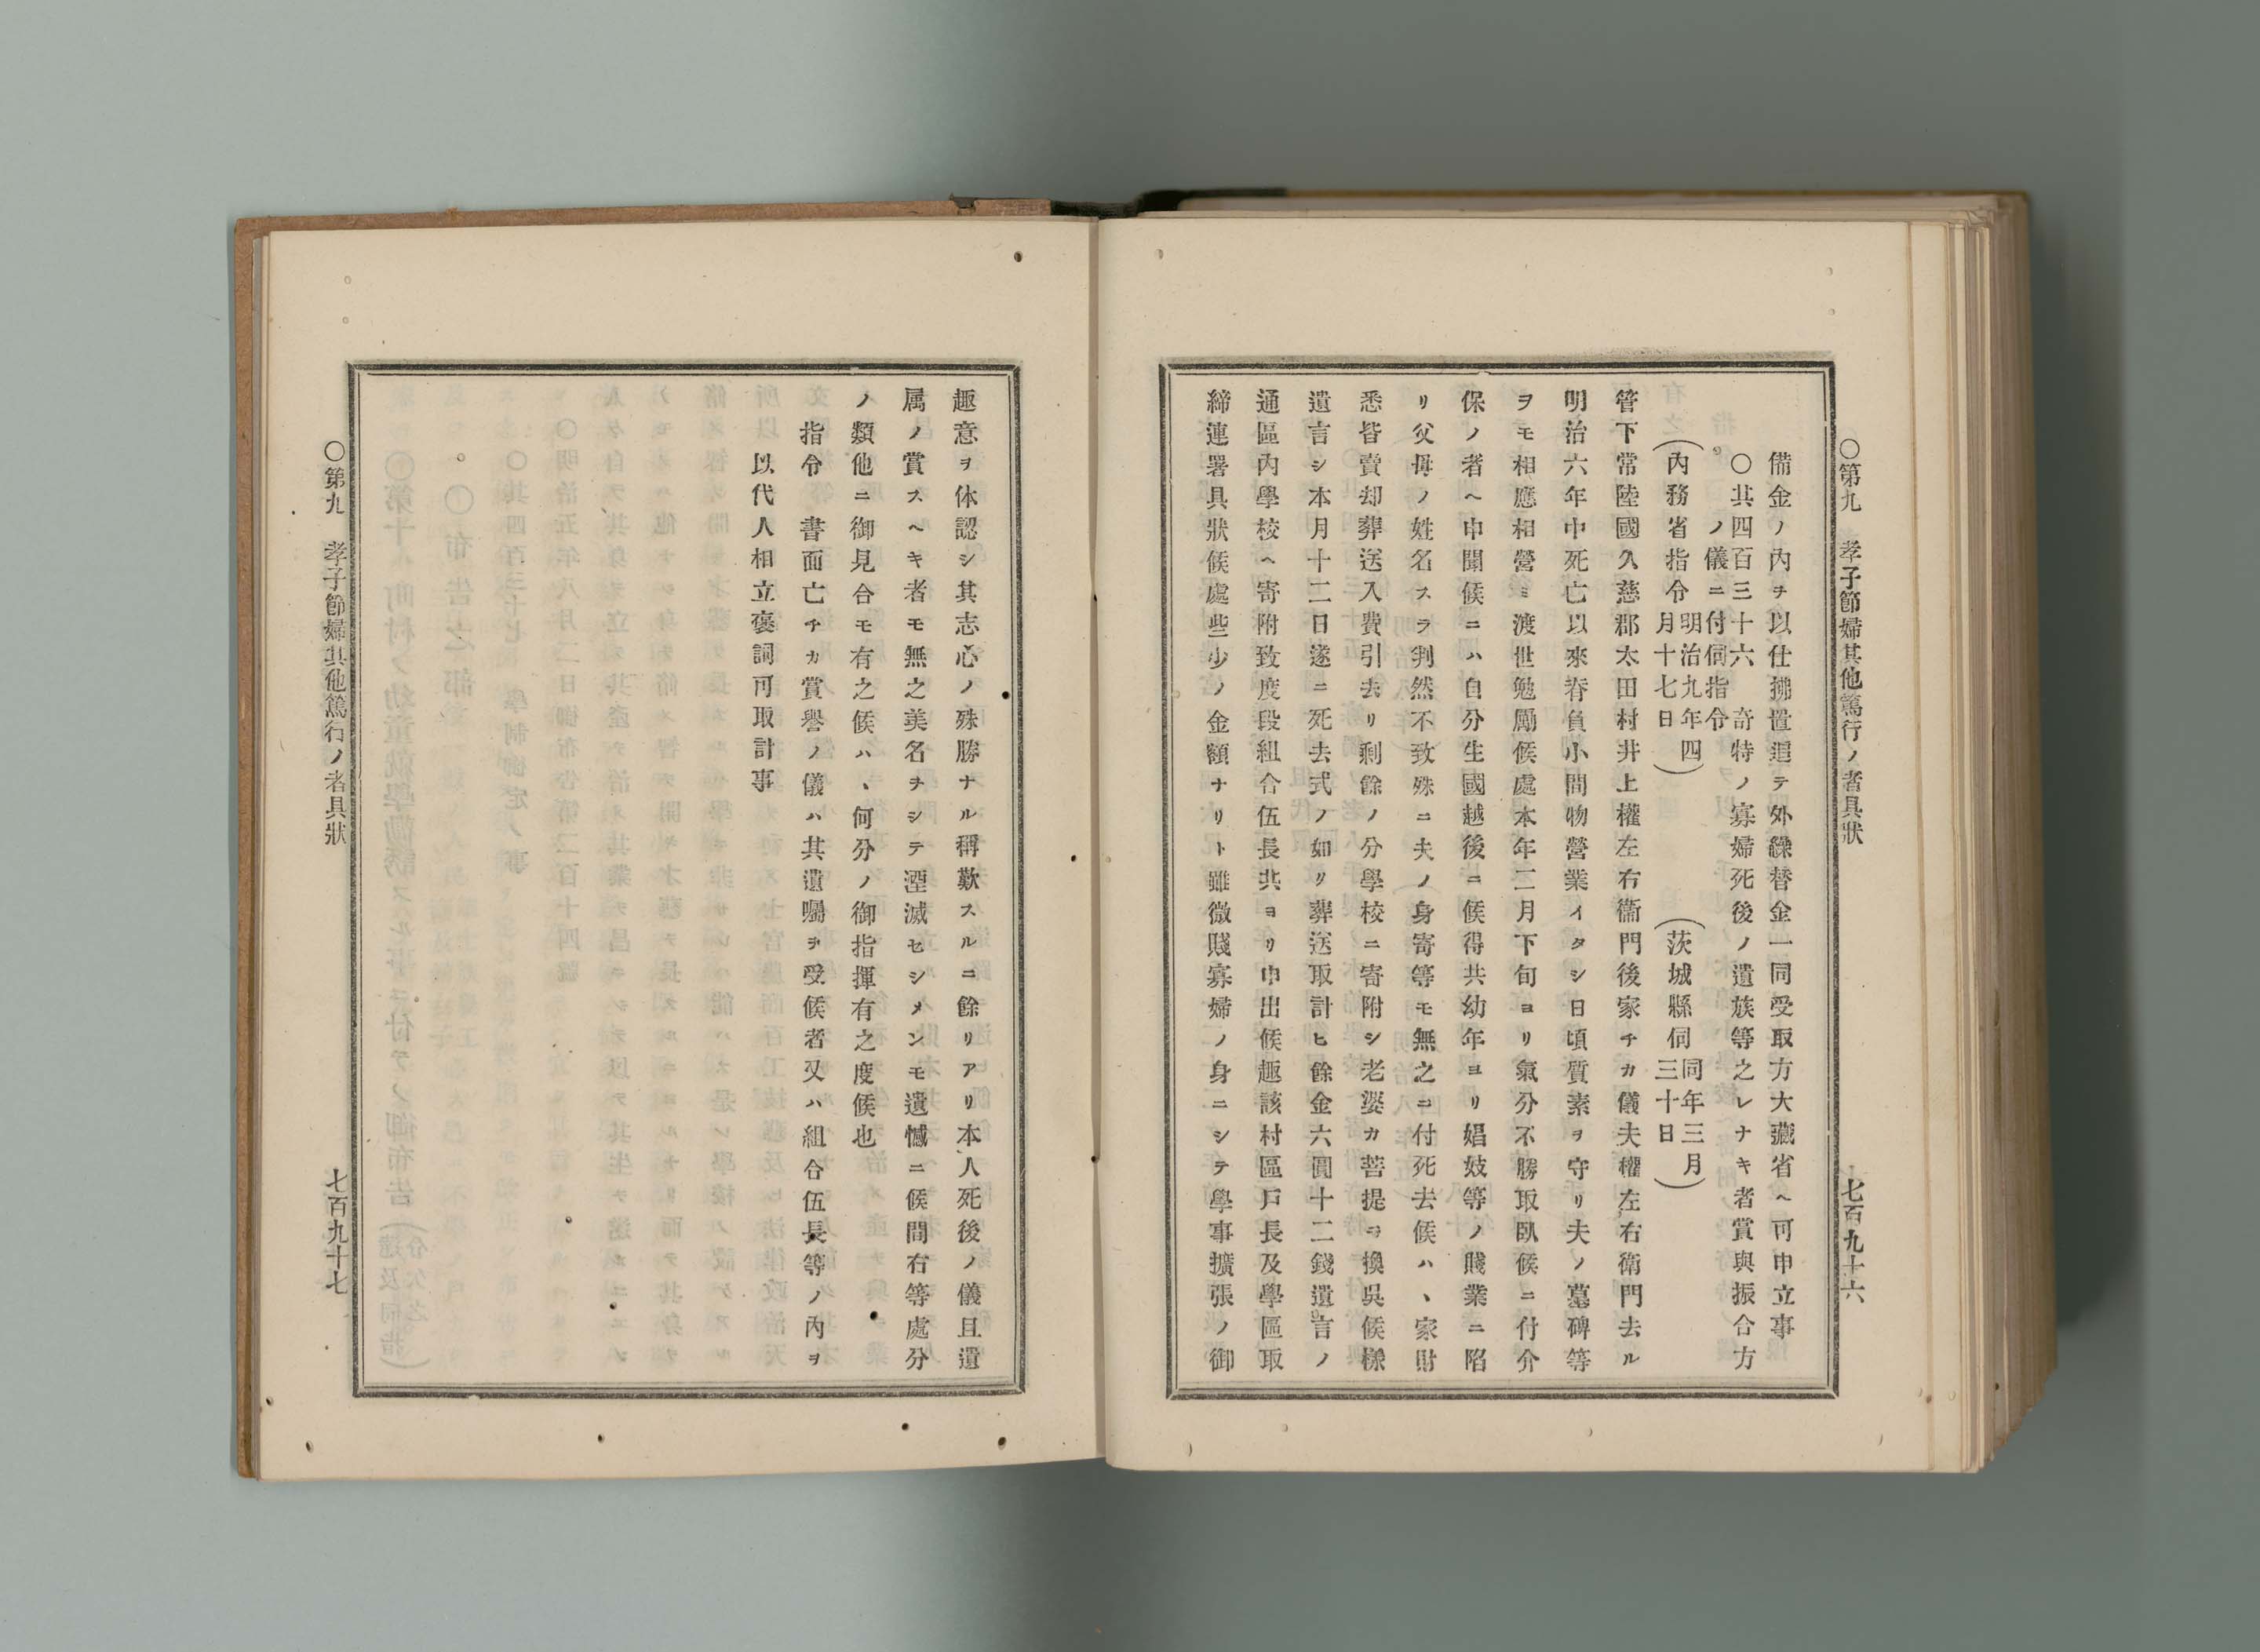 〇第九　孝子節婦其他篤行ノ者具狀　七百九十六
備金ノ內ヲ以仕拂置追テ外繰替金一同受取方大藏省ヘ可申立事
〇其四百三十六　奇特ノ寡婦死後ノ遺族等之レナキ者賞與振合方
ノ儀ニ付伺指令
（茨城縣伺　同年三月三十日）
（內務省指令　明治九年四月十七日）
管下常陸國久慈郡太田村井上權左右衞門後家チカ儀夫權左右衞門去ル
明治六年中死亡以來脊負小間物營業イタシ日頃質素ヲ守リ夫ノ墓碑等
ヲモ相應相營ミ渡世勉勵候處本年二月下旬ヨリ氣分不勝取臥候ニ付介
保ノ者ヘ申聞候ニハ自分生國越後ニ候得共幼年ヨリ娼妓等ノ賤業ニ陷
リ父母ノ姓名スラ判然不致殊ニ夫ノ身寄等モ無之ニ付死去候ハヽ家財
悉皆賣却葬送入費引去リ剩餘ノ分學校ニ寄附シ老婆カ菩提ヲ換吳候樣
遺言シ本月十二日遂ニ死去式ノ如リ葬送取計ヒ餘金六圓十二錢遺言ノ
通區內學校ヘ寄附致度段組合伍長共ヨリ申出候趣該村區戶長及學區取
締連署具狀候處些少ノ金額ナリト雖微賤寡婦ノ身ニシテ學事擴張ノ御
趣意ヲ体認シ其志心ノ殊勝ナル稱歎スルニ餘リアリ本人死後ノ儀且遺
属ノ賞スヘキ者モ無之美名ヲシテ湮滅セシメンモ遺憾ニ候間右等處分
ノ類他ニ御見合モ有之候ハヽ何分ノ御指揮有之度候也
指令　書面亡チカ賞譽ノ儀ハ其遺囑ヲ受候者又ハ組合伍長等ノ內ヲ
以代人相立褒詞可取計事
〇第九　孝子節婦其他篤行ノ者具狀　七百九十七